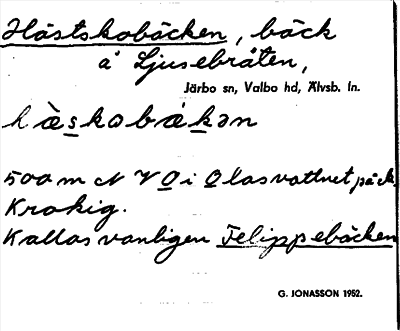 Hästskobäcken, bäck
å Ljusebråten,
Järbo sn, Valbo hd, Älvsb. ln.
hæ̀skobækən
500 m N VO i Olasvattnet på ek.
Krokig.
Kallas vanligen Felippebäcken
G. JONASSON 1952.